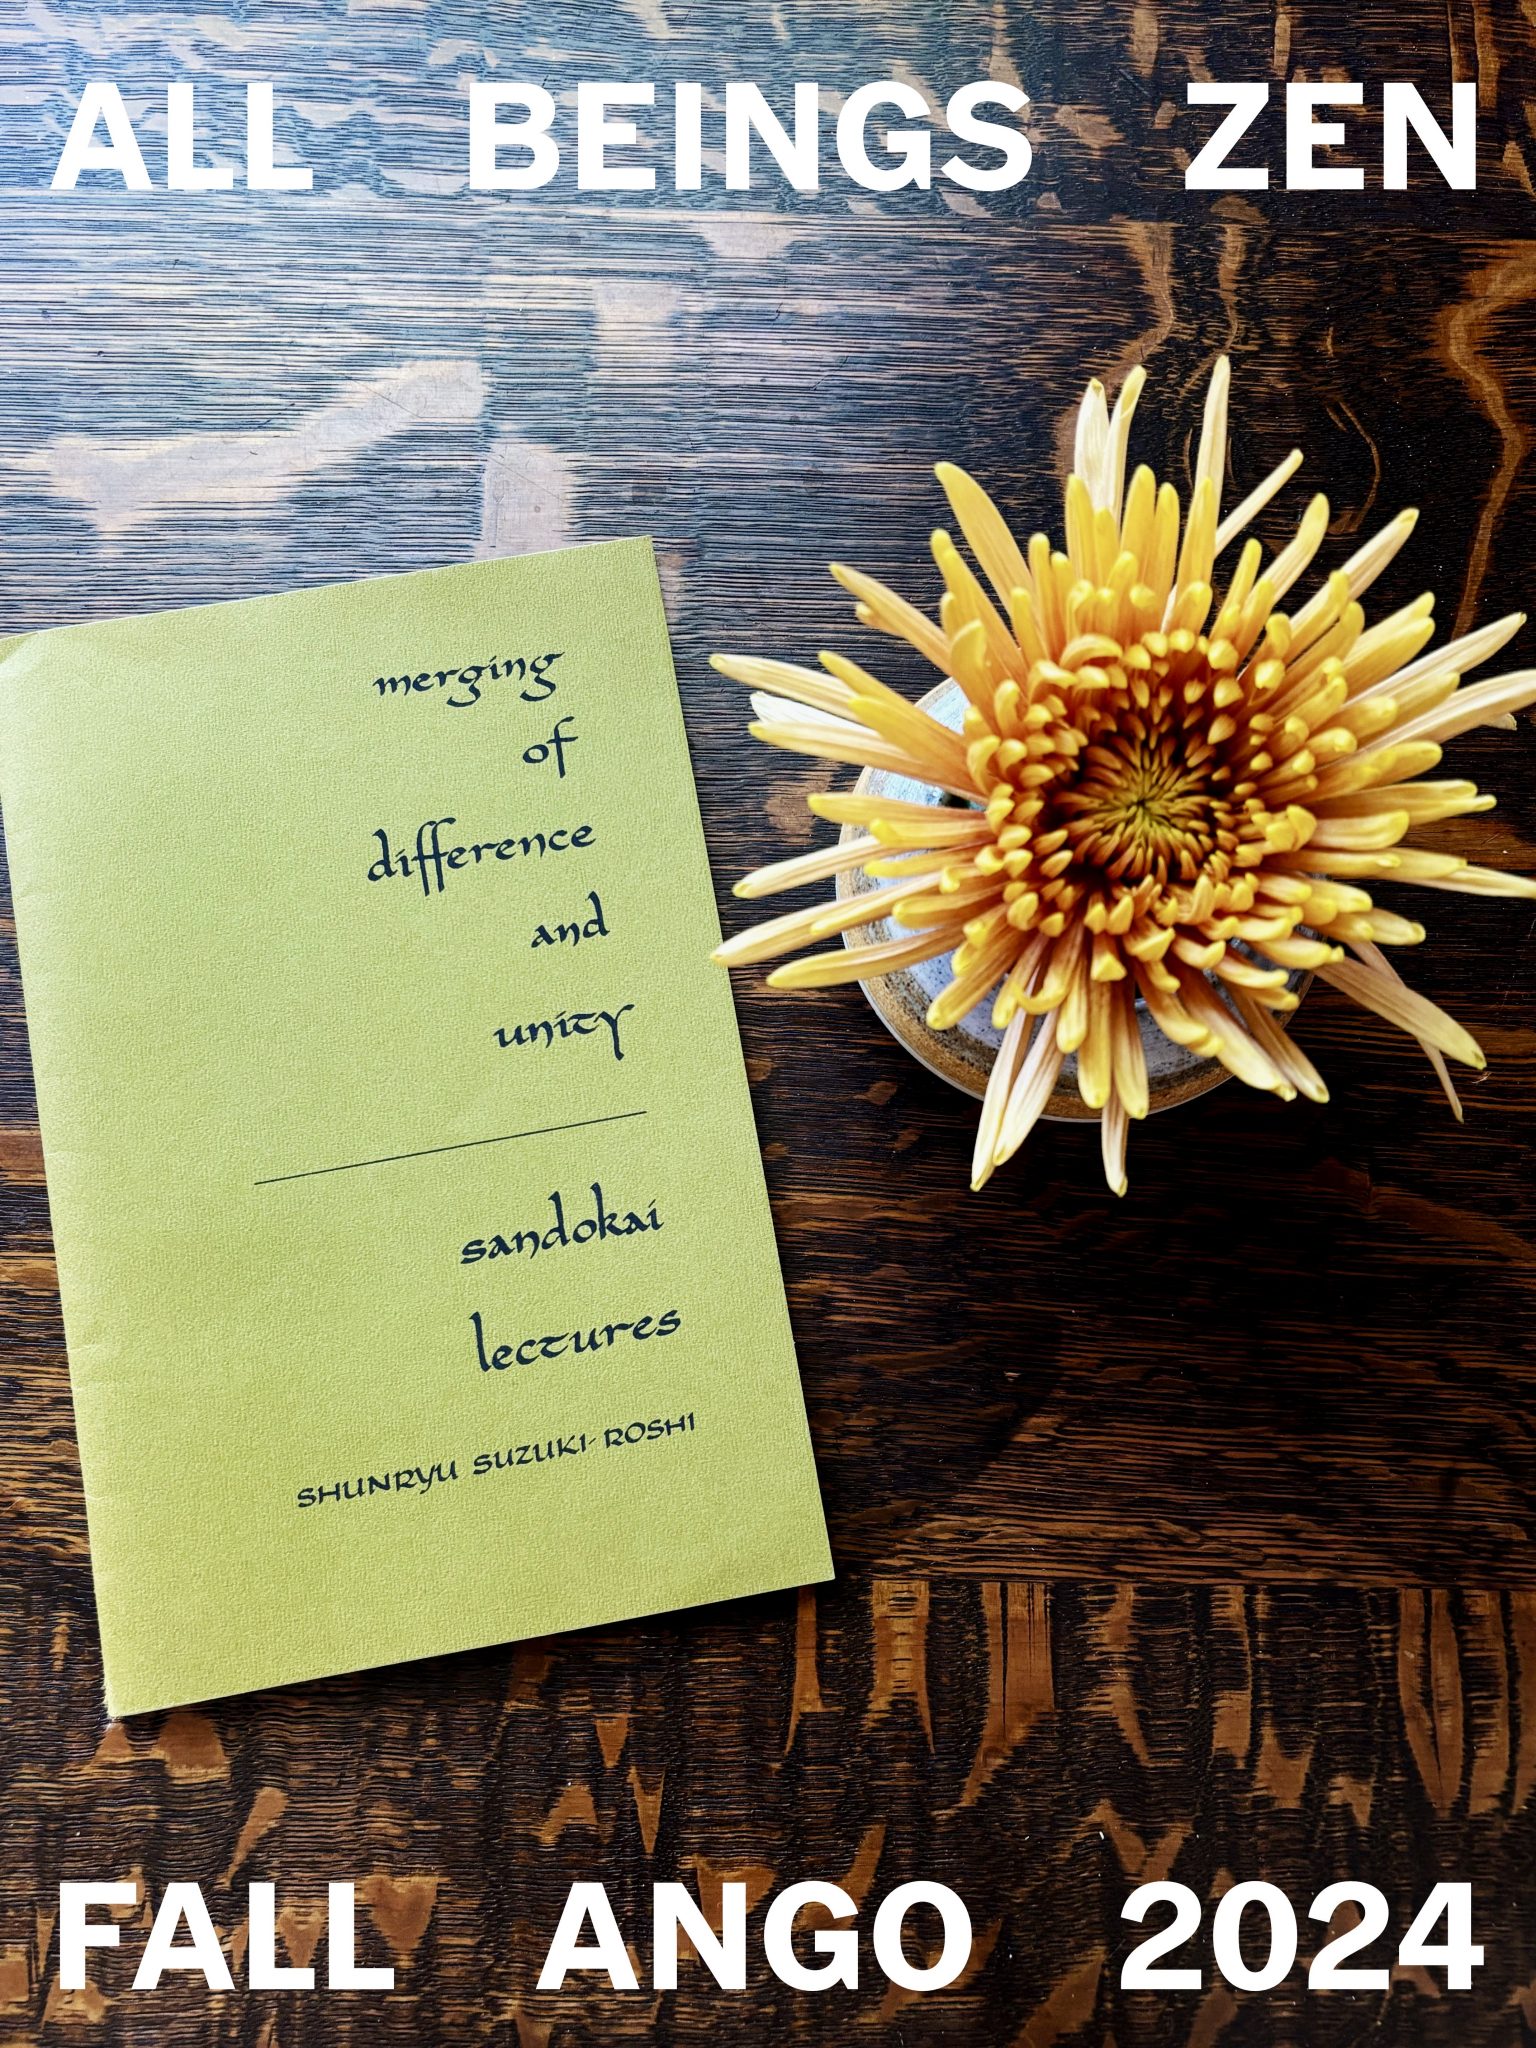 ALL BEINGS ZEN
merging
of
difference
and
unity
sandokai
lectures
SHUNRYU SUZUKI-ROSHI
FALL ANGO 2024